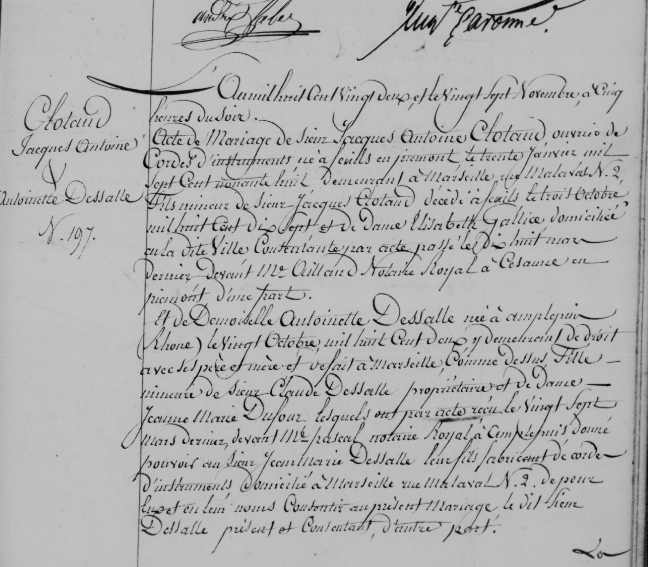 Augte Garonne.
Clotaud
Jacques Antoine
&
Antoinette Dessalle
N. 197.
L'an mil huit Cent Vingt deux, et le Vingt Sept Novembre, à Cinq
heures du Soir.
Acte de Mariage de Sieur Jacques Antoine Clotaud ouvrier de
Cordes d'instruments né à en piemont le trente Janvier mil
Sept Cent nonante huit Demeurant à Marseille rue Malaval N. 2.
Fils mineur de Sieur Jacques Clotaud décédé à le trois Octobre
mil huit Cent Dix Sept et de Dame Elisabeth Gallice domiciliée
en la dite Ville Consentante par acte passé le Dix huit mars
dernier devant Me Notaire Royal à Cesanne en
piemont d'une part.
Et de Demoiselle Antoinette Dessalle née à amplepuis
(Rhone) le Vingt Octobre, mil huit Cent Deux y demeurant de droit
avec ses père et mère et de fait à Marseille, Comme dessus, Fille
mineure de Sieur Claude Dessalle propriétaire et de Dame
Jeanne Marie Dufour lesquels ont par acte reçu le Vingt Sept
Mars dernier, devant Me pascal notaire Royal à Amplepuis donné
pouvoir au Sieur Jean Marie Dessalle leur fils fabricant de corde
d'instruments domicilié à Marseille rue Malaval N. 2. de pour
Eux et en leur noms Consentir au présent Mariage, le dit Sieur
Dessalle présent et Consentant, d'autre part.
La